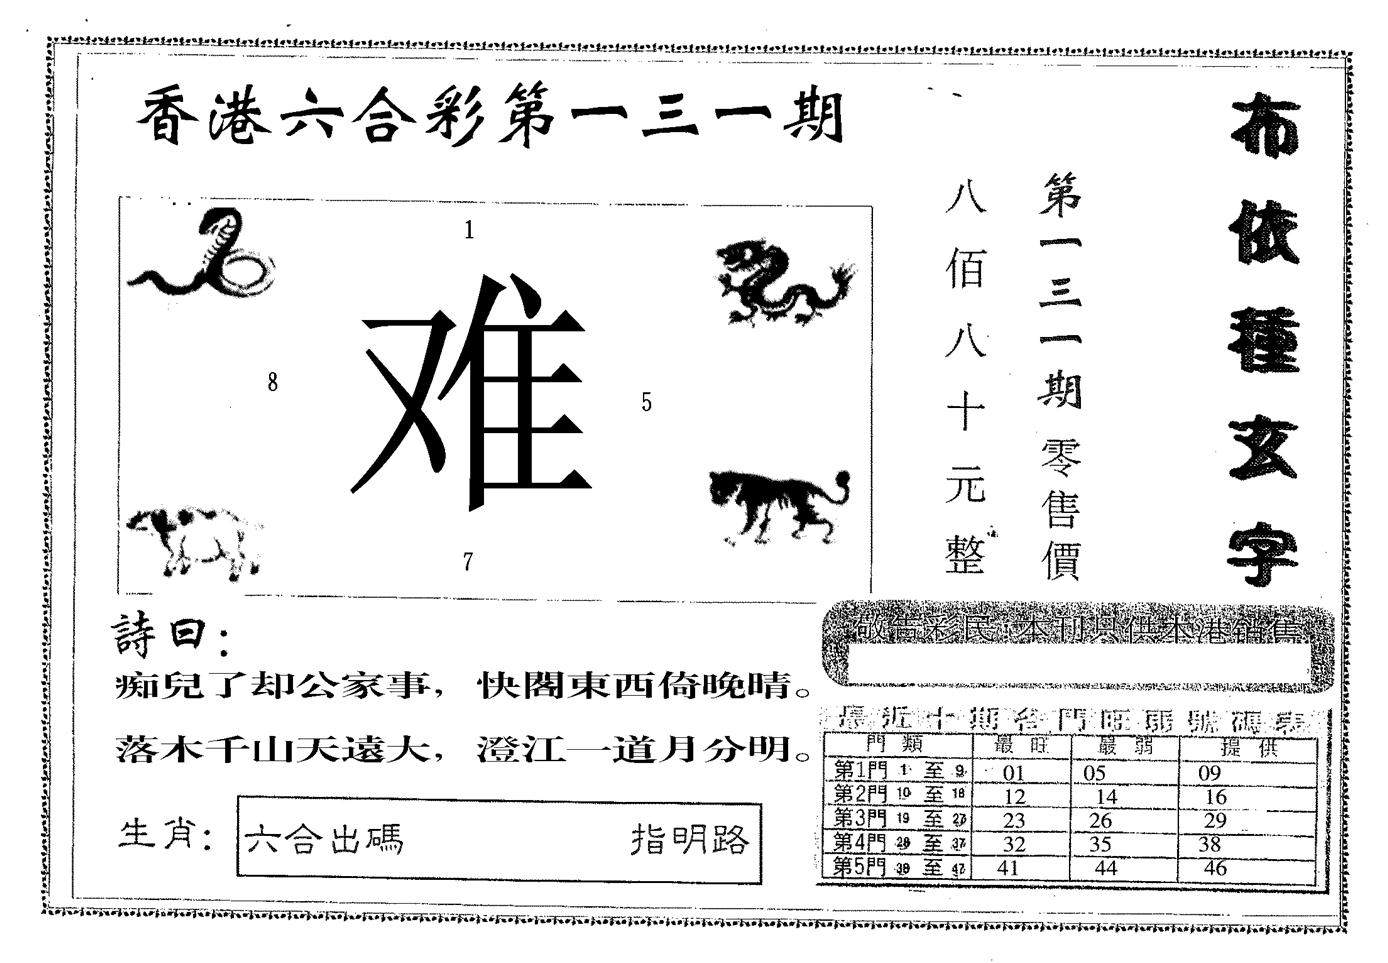 香港六合彩第一三一期
布依種玄字
第一三一期零售價
八佰八十元整
1
8
难
5
7
詩曰：
痴兒了却公家事，快閣東西倚晚晴。
落木千山天遠大，澄江一道月分明。
生肖：六合出碼 指明路
敬告彩民：本刊只供本港銷售
最近十期各門旺弱號碼表
門類 最旺 最弱 提供
第1門 1 至 9 01 05 09
第2門 10 至 18 12 14 16
第3門 19 至 27 23 26 29
第4門 28 至 37 32 35 38
第5門 38 至 47 41 44 46